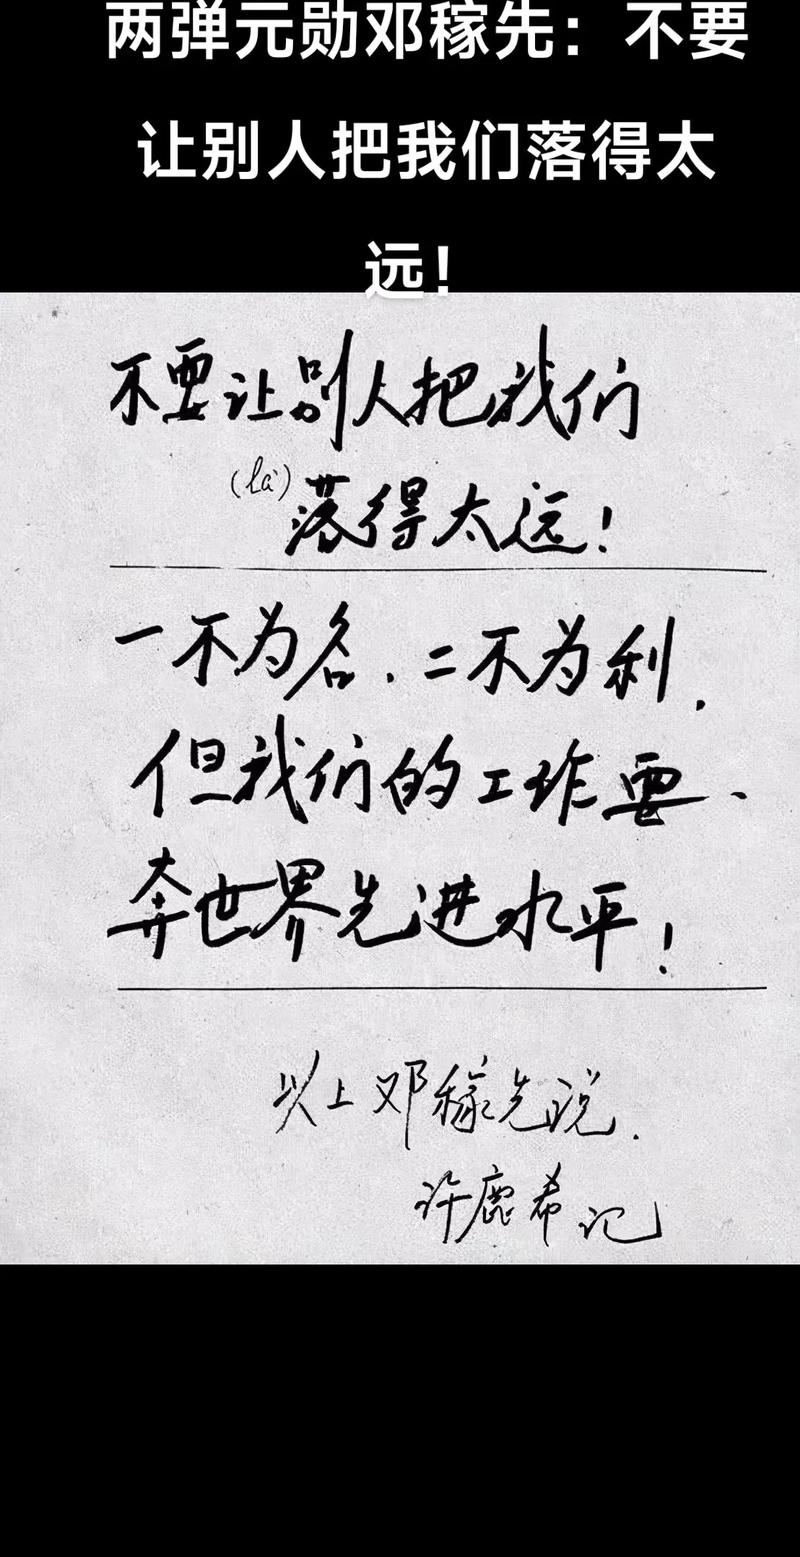 两弹元勋邓稼先：不要
让别人把我们落得太
远！
不要让别人把我们
(là)落得太远！
一不为名、二不为利，
但我们的工作要、
奔世界先进水平！
以上邓稼先说．
许鹿希记